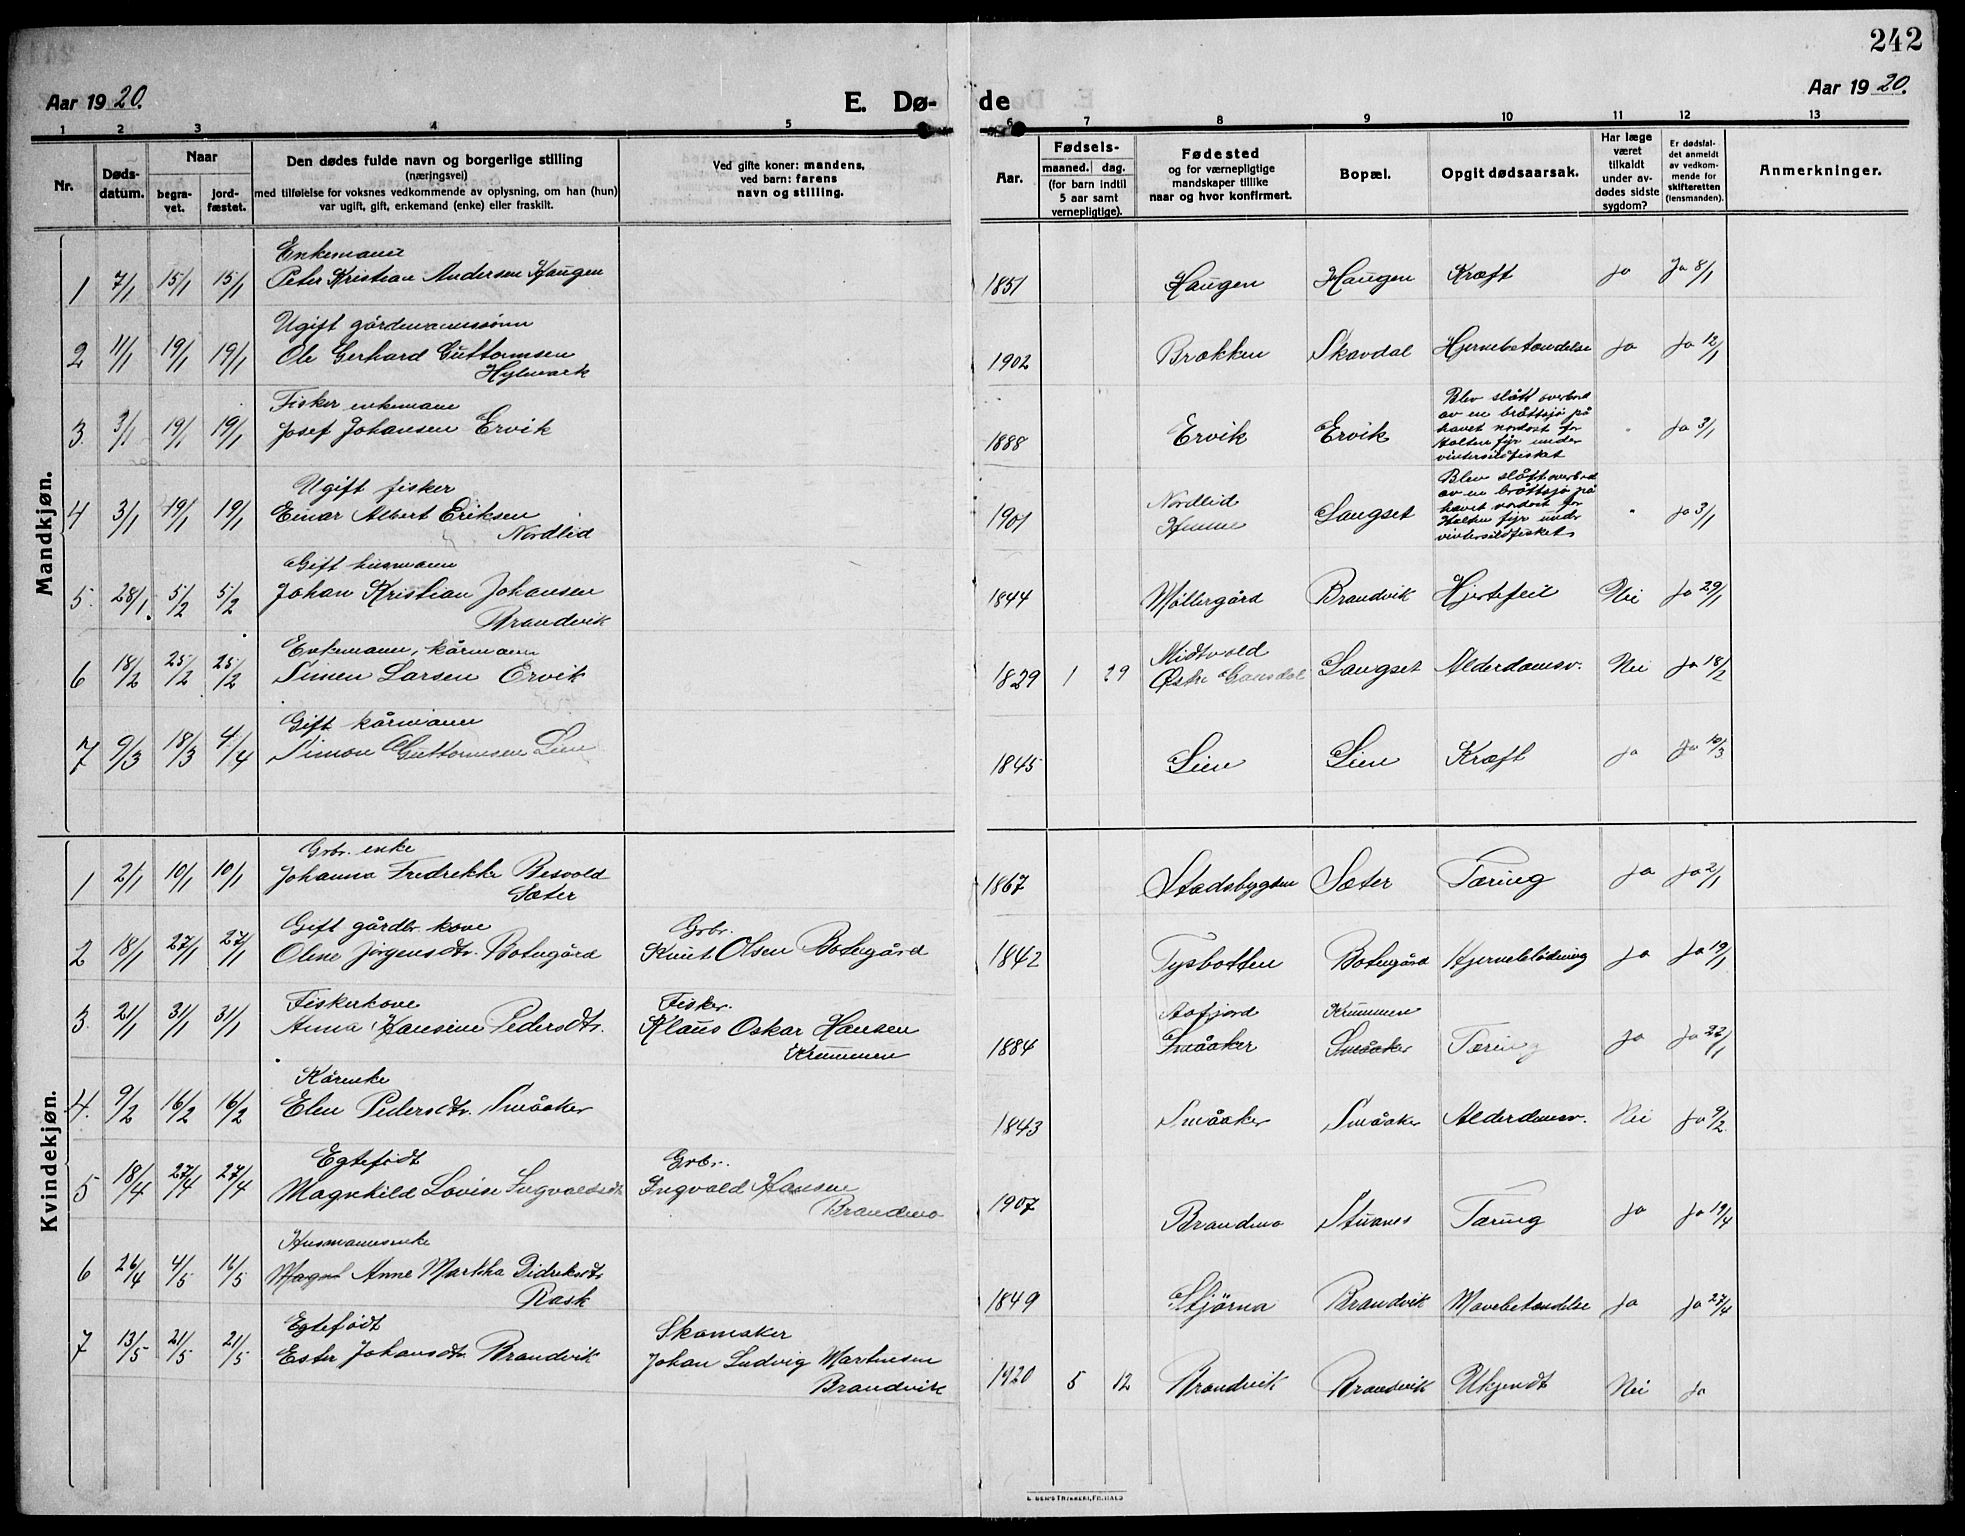 242
Aar 1920.
E. Dø-
de
Aar 1920.
1 2 3 4 5 6 7 8 9 10 11 12 13
Nr.
Døds-
datum.
Naar
begra-
vet.
jord-
fæstet.
Den dødes fulde navn og borgerlige stilling
(næringsvei)
med tilføielse for voksnes vedkommende av oplysning, om han (hun)
var ugift, gift, enkemand (enke) eller fraskilt.
Ved gifte koner: mandens,
ved barn: farens
navn og stilling.
Aar.
Fødsels-
maaned. dag.
(for barn indtil
5 aar samt
vernepligtige).
Fødested
og for værnepligtige
mandskaper tillike
naar og hvor konfirmert.
Bopæl.
Opgit dødsaarsak.
Har læge
været
tilkaldt
under av-
dødes sidste
sygdom?
Er dødsfal-
det anmeldt
av vedkom-
mende for
skifteretten
(lensmanden).
Anmerkninger.
Mandkjøn.
Enkemann
1 7/1 15/1 15/1 Peter Kristian Andersen Haugen 1851 Haugen Haugen Kræft ja Ja 8/1
Ugift gårdmannssønn
2 11/1 19/1 19/1 Ole Gerhard Guttormsen 1902 Brækken Skavdal Hjernebetændelse ja ja 12/1
Hylmark
Fisker enkemann
3. 3/1 19/1 19/1 Josef Johansen Ervik 1888 Ervik Ervik " ja 3/1
Blev slått overbord
av en bråttsjø på
havet nordost for
Halten fyr under
vintersildfisket
Ugift fisker
4 3/1 19/1 19/1 Einar Albert Eriksen 1901 Nordlid Langset " ja 3/1
Nordlid
Hemne
Blev slått overbord
av en bråttsjø på
havet nordost for
Halten fyr under
vintersildfisket
Gift husmann
5. 28/1. 5/2 5/2 Johan Kristian Johansen 1844 Møllergård Brandvik Hjertefeil Nei ja 29/1
Brandvik
Enkemann, kårmann
6 18/2 25/2 25/2 Simen Larsen Ervik 1829 1 29 Midtvold Langset Alderdomsv. Nei ja 18/2
Gift kårmann
7 9/3 18/3 4/4 Simon Guttormsen Lien 1845 Lien Lien Kræft ja ja 10/3
Kvindekjøn.
Grbr. enke
1 2/1 10/1 10/1 Johanna Fredrekke Besvold 1867 Stadsbygden Sæter Tæring ja ja 2/1
Sæter
Gift gårdbr. kone
Grbr.
2 18/1 27/1 27/1 Oline Jørgensdtr. Botngård Knut Olsen Botngård 1842 Tysbotten Botngård Hjerneblødning ja ja 19/1
Fiskerkone
Fisker.
Aafjord Krummen
3. 21/1 31/1 31/1 Anna Hansine Pedersdtr. Klaus Oskar Hansen 1884 Småaker Småaker Tæring ja ja 22/1
Krummen
Kårenke
4. 9/2 16/2 16/2 Elen Pedersdtr. Småaker 1843 Småaker Småaker Alderdomsv. Nei ja 9/2
Egtefødt
Grbr.
5 18/4 27/4 27/4 Magnhild Lovise Ingvaldsdtr Ingvald Hansen 1907 Brandmo Stuanes Tæring ja ja 19/4
Brandmo
Husmannsenke
6 26/4 4/5 16/5 Magnh Anne Martha Didreksdtr 1849 Stjørna Brandvik Mavebetændelse ja ja 27/4
Rask
Egtefødt
Skomaker
7 13/5 21/5 21/5 Ester Johansdtr. Brandvik Johan Ludvig Martinsen 1920 5 12 Brandvik Brandvik Ukjendt Nei ja
Brandvik